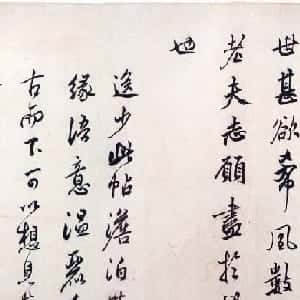 世甚欲希風數
老夫志願盡於
也
逸少此帖澹泊
緣語意溫麗
古而下可以想見